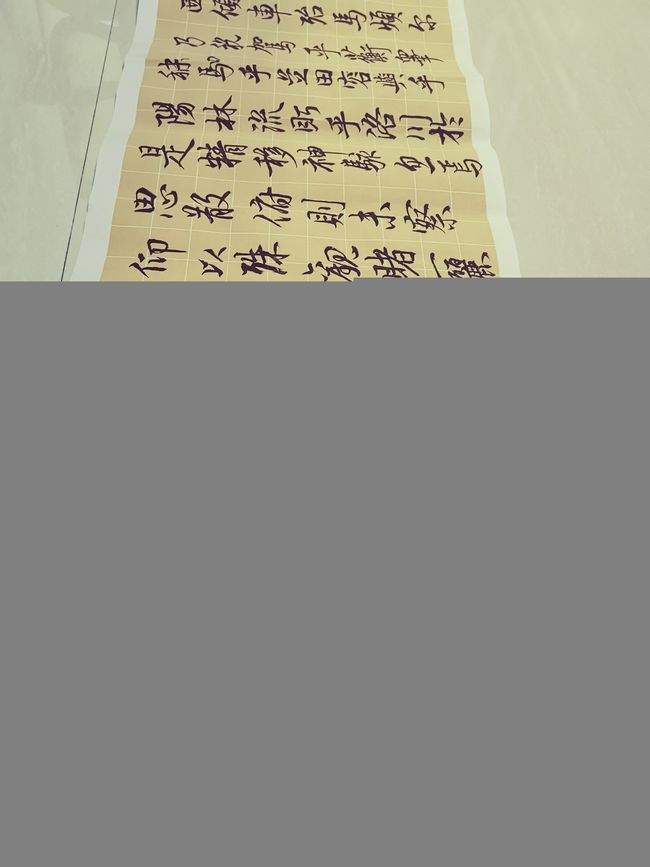 西傾車殆馬煩尔
乃税駕乎蘅皋
秣駟乎芝田容與乎
陽林流眄乎洛川於
是精移神駭忽焉
思散俯則未察
仰以殊觀睹一麗